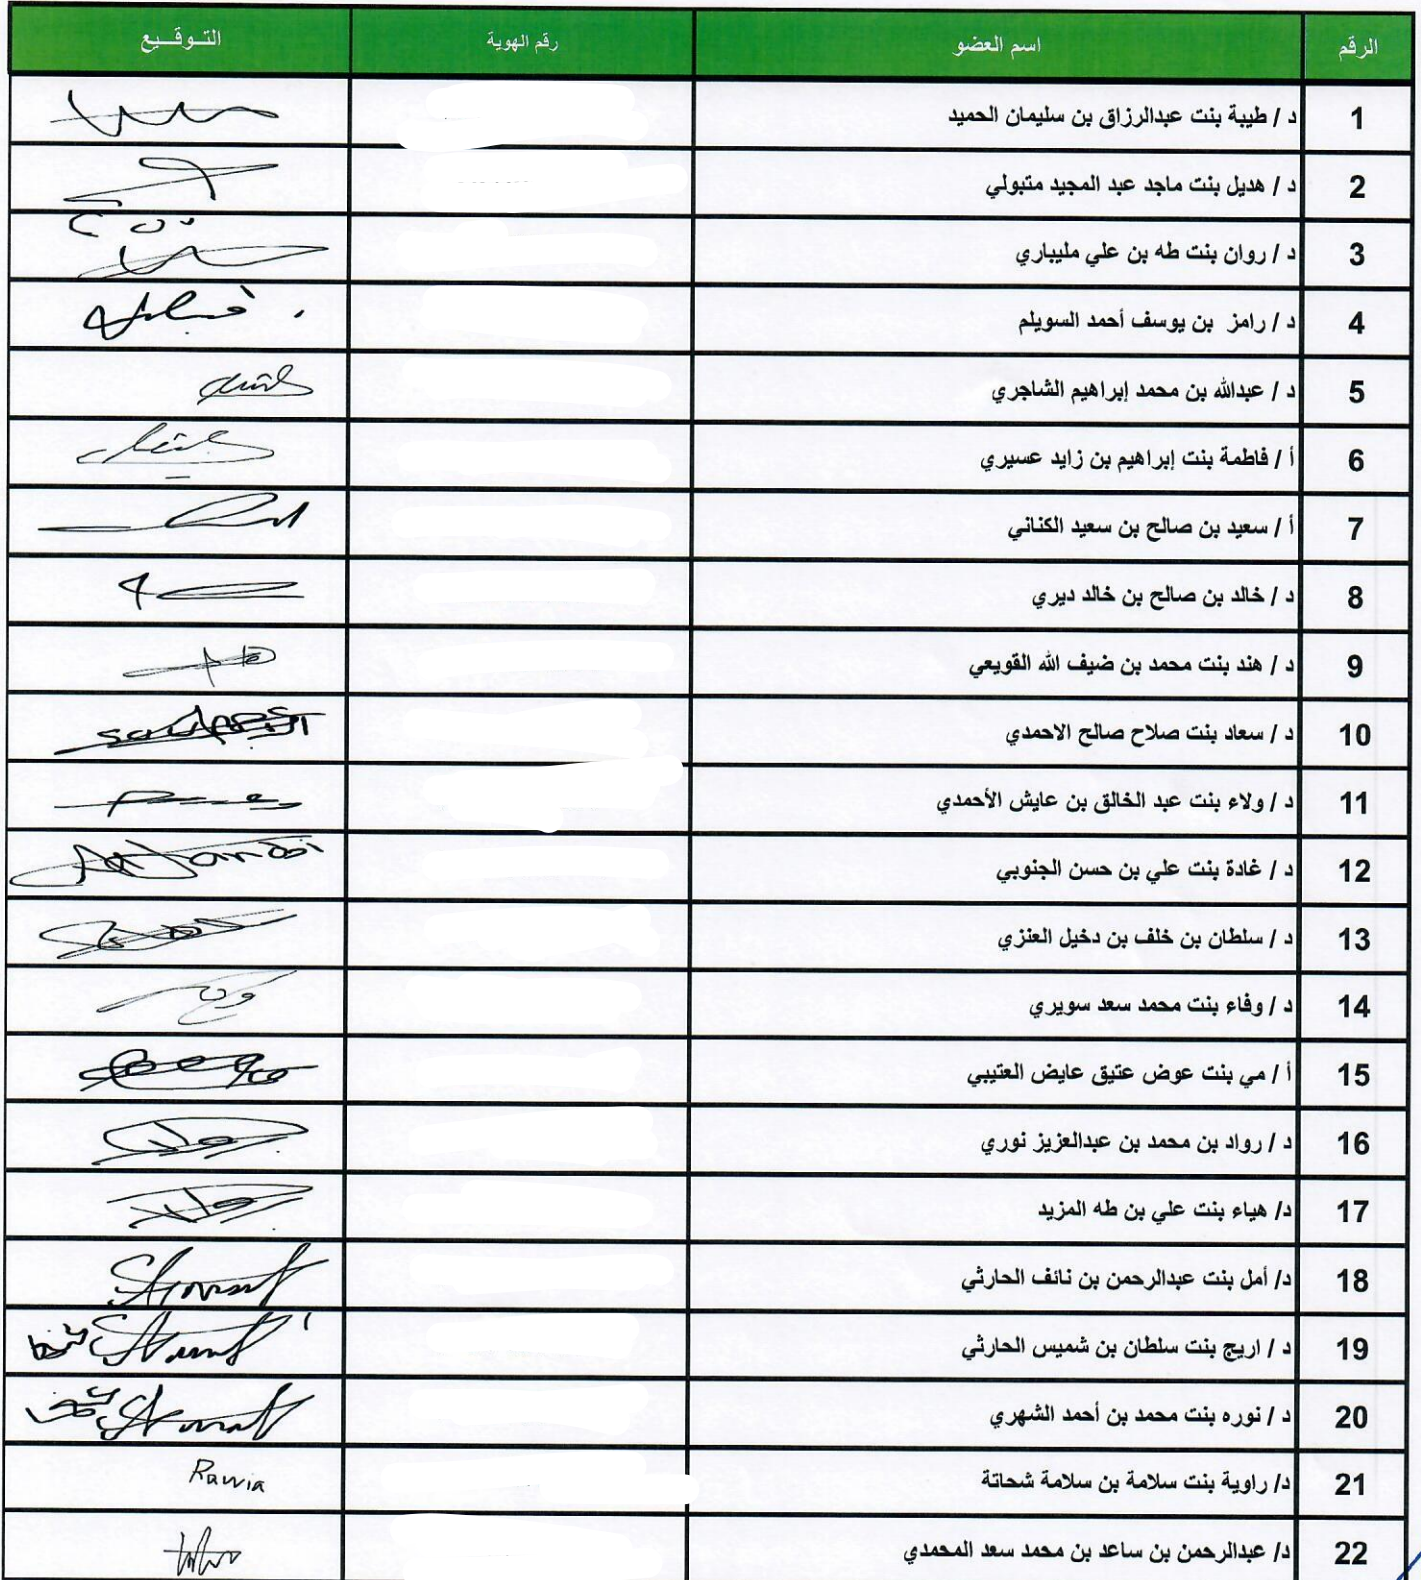 الرقم اسم العضو رقم الهوية التـوقـيـع
1 د / طيبة بنت عبدالرزاق بن سليمان الحميد
2 د / هديل بنت ماجد عبد المجيد متبولي
3 د / روان بنت طه بن علي مليباري
4 د / رامز بن يوسف أحمد السويلم
5 د / عبدالله بن محمد إبراهيم الشاجري
6 أ / فاطمة بنت إبراهيم بن زايد عسيري
7 أ / سعيد بن صالح بن سعيد الكناني
8 د / خالد بن صالح بن خالد ديري
9 د / هند بنت محمد بن ضيف الله القويعي
10 د / سعاد بنت صلاح صالح الاحمدي
11 د / ولاء بنت عبد الخالق بن عايش الأحمدي
12 د / غادة بنت علي بن حسن الجنوبي
13 د / سلطان بن خلف بن دخيل العنزي
14 د / وفاء بنت محمد سعد سويري
15 أ / مي بنت عوض عتيق عايض العتيبي
16 د / رواد بن محمد بن عبدالعزيز نوري
17 د/ هياء بنت علي بن طه المزيد
18 د/ أمل بنت عبدالرحمن بن نائف الحارثي
19 د / اريج بنت سلطان بن شميس الحارثي
20 د / نوره بنت محمد بن أحمد الشهري
21 د/ راوية بنت سلامة بن سلامة شحاتة Rawia
22 د/ عبدالرحمن بن ساعد بن محمد سعد المحمدي